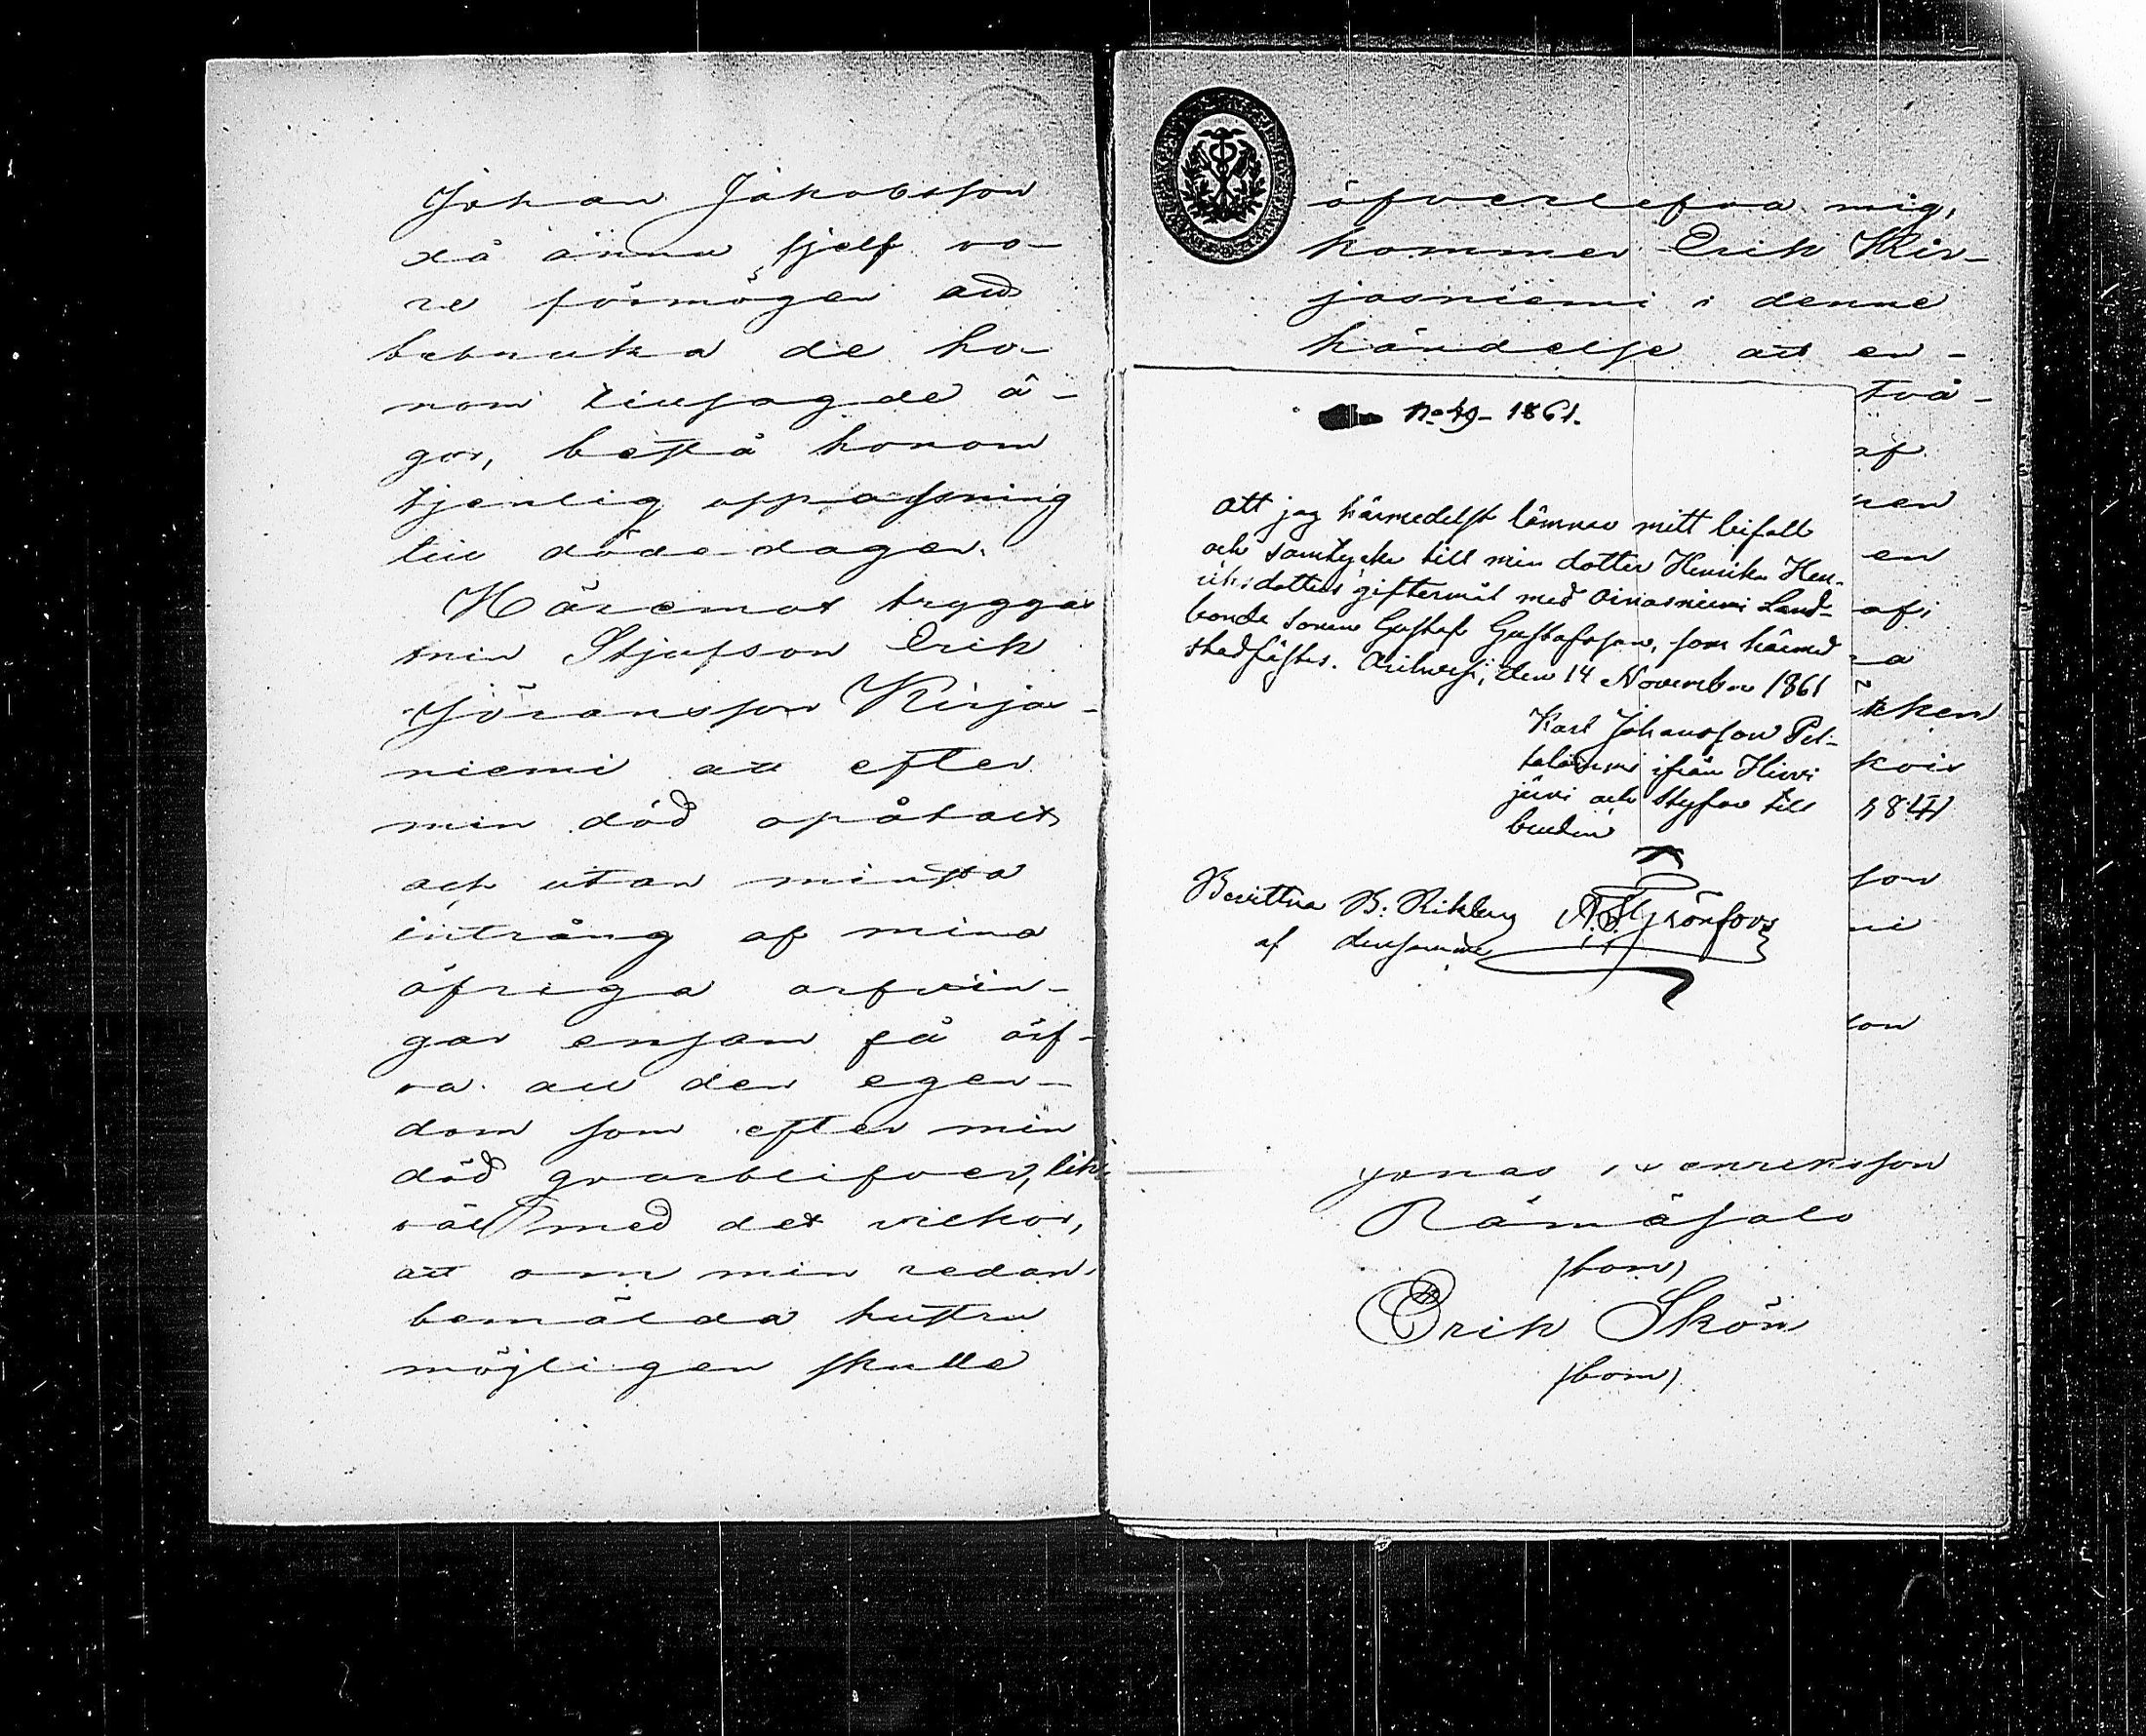 Johan Jakobsson
då ännu sjelf vo-
re förmögen att
bebruka de ho-
nom tillsagde ä-
gor, bestå honom
tjenlig uppassning
till döde dagar.
Häremot tryggar
min Stjufson Erik
Jöransson Kirjas-
niemi att efter
min död opåtalt
och utan minsta
intrång af mina
öfriga arfvin-
gar ensam få ärf-
va all den egen-
dom som efter min
död qvarblifver, lik-
väl med det vilkor,
att om min redan
bemälda hustru
möjligen skulle
öfverlefva mig,
kommer Erik Kir-
jasniemi i denne
händelse att en-
två-
af
en
afi
a
kois
son
ni
son
No 49 - 1861.
Att jag härmedelst lämnar mitt bifall
och samtycke till min dotter Henrika Hen-
riksdotters giftermål med Oinasniemi Land-
bonde sonen Gustaf Gustafsson, som härmed
stadfästes. den 14 November 1861
Karl Johansson Pel-
ifrån Hirvi
järvi och Styfar till
bruden
Bevittna
af densamme
Jonas Henriksson
Rämäsalo
(bom)
Erik Skön
(bom)